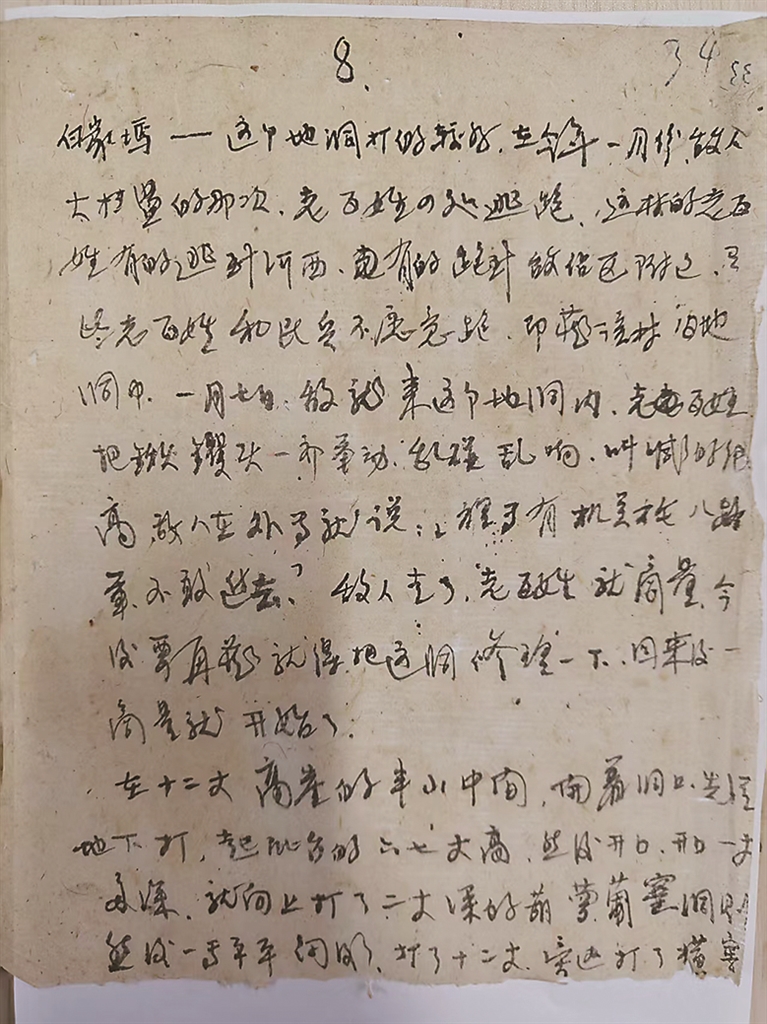 8.
34
白家塢——这个地洞打的较好,在今年一月份,敌人
大扫荡的那次,老百姓四处逃跑,这村的老百
姓有的逃到河西,有的跑到敌佔区附近,
老百姓和民兵不愿意跑,即藏该村的地
洞中,一月七日,敌到来这个地洞内,老百姓
把鍁钁头一齐舞动,乱碰乱响,叫喊的很
高,敌人在外马就说:“里马有机关枪八路
军,不敢进去”敌人走了,老百姓就商量,今
后要再藏就得把这洞修理一下,回来后一
商量就开始了。
在十二丈高崖的半山中间,面着洞口,先
地下打,起的六七丈高,然后开口,开口一丈
多深,就向上打了二丈深的葫萝蔔窖洞
然后一马平平向后,打了十二丈,打了横窑